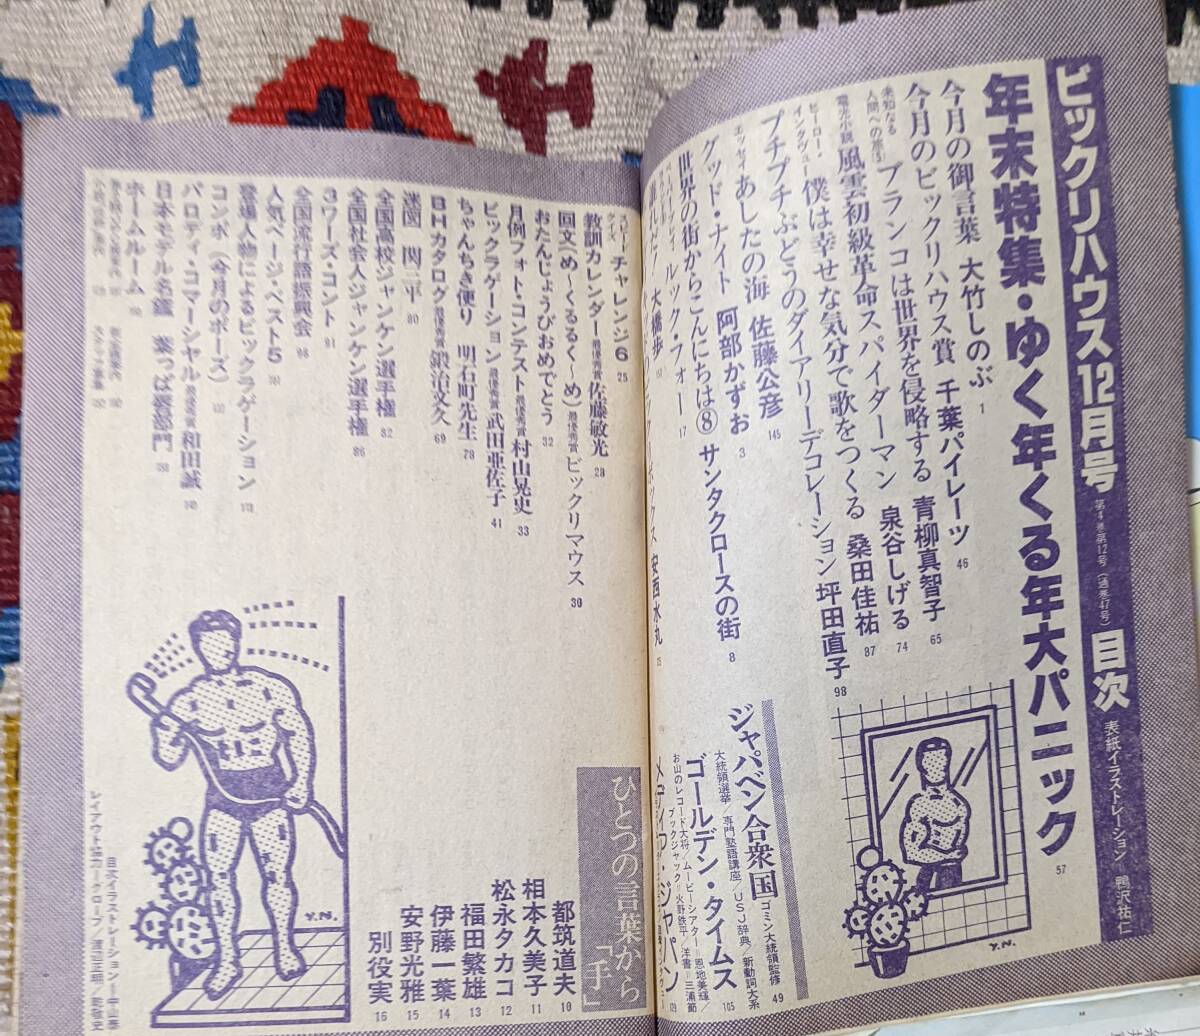 ビックリハウス12月号 第4巻第12号(通巻47号) 目次 表紙イラストレーション 鴨沢祐仁
年末特集・ゆく年くる年大パニック 57
今月の御言葉 大竹しのぶ 1
今月のビックリハウス賞 千葉パイレーツ 46
未知なる人間への旅⑤ ブランコは世界を侵略する 青柳真智子 65
電光小説 風雲初級革命スパイダーマン 泉谷しげる 74
ヒーロー・インタヴュー 僕は幸せな気分で歌をつくる 桑田佳祐 87
プチプチぶどうのダイアリーデコレーション 坪田直子 98
エッセイ あしたの海 佐藤公彦 145
グッド・ナイト 阿部かずお 3
世界の街からこんにちは⑧ サンタクロースの街 8
ルック・フォー 17
大橋歩
ボックス 安西水丸
ジャパベン合衆国 ゴミン大統領監修 49
大統領選挙/専門塾語講座/USJ辞典/新動詞大系
ゴールデン・タイムス 105
お山のレコード大将/ムービーシアター=恩地美輝/
ブックジャック=火野鉄平/洋書=三浦節
メディア・ジャパン
スピードクイズ チャレンジ6 25
教訓カレンダー 最優秀賞 佐藤敏光 28
回文(め〜くるるく〜め) 最優秀賞 ビックリマウス 30
おたんじょうびおめでとう 32
月例フォト・コンテスト 最優秀賞 村山晃史 33
ビックラゲーション 最優秀賞 武田亜佐子 41
ちゃんちき便り 明石町先生 78
BHカタログ 最優秀賞 鍛治文久 69
迷図 関三平 80
全国高校ジャンケン選手権 82
全国社会人ジャンケン選手権 86
3ワーズ・コント 91
全国流行語振興会 96
人気ページ・ベスト5
登場人物によるビックラゲーション
コンポ(今月のポーズ)
パロディ・コマーシャル 最優秀賞 和田誠
日本モデル名鑑 葉っぱ髪部門
ホームルーム
ひとつの言葉から「手」
都筑道夫 10
相本久美子 11
松永タカコ 12
福田繁雄 13
伊藤一葉 14
安野光雅 15
別役実 16
目次イラストレーション=中山泰
Y.N.
Y.N.